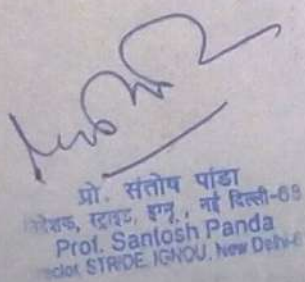 प्रो. संतोष पांडा
स्ट्राइड, इग्नू, नई दिल्ली-68
Prof. Santosh Panda
STRIDE, IGNOU, New Delhi-6